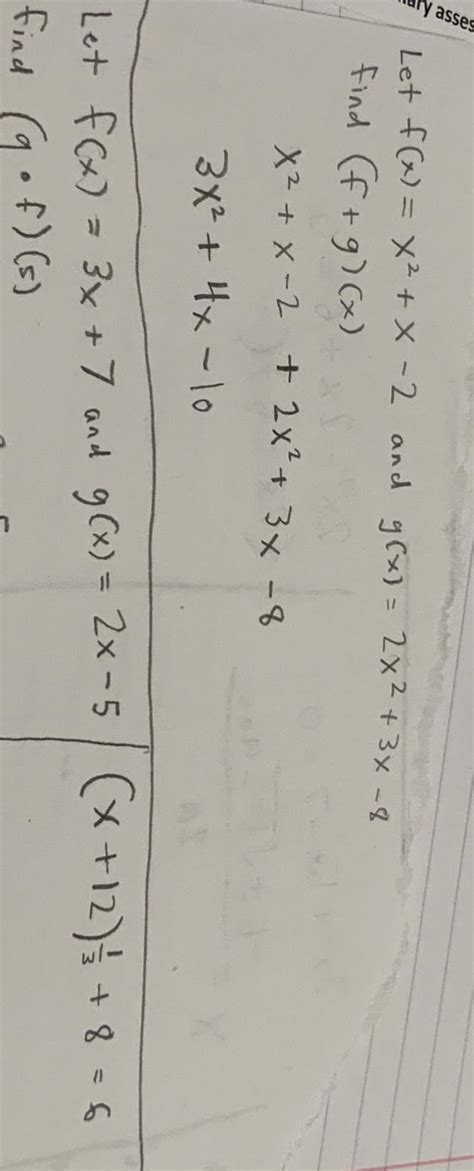 ary asses
Let f(x) = x² + x - 2 and g(x) = 2x² + 3x - 8
find (f + g)(x)
x² + x - 2 + 2x² + 3x - 8
3x² + 4x - 10
Let f(x) = 3x + 7 and g(x) = 2x - 5
find (g • f)(5)
(x + 12)^{1/3} + 8 = 6